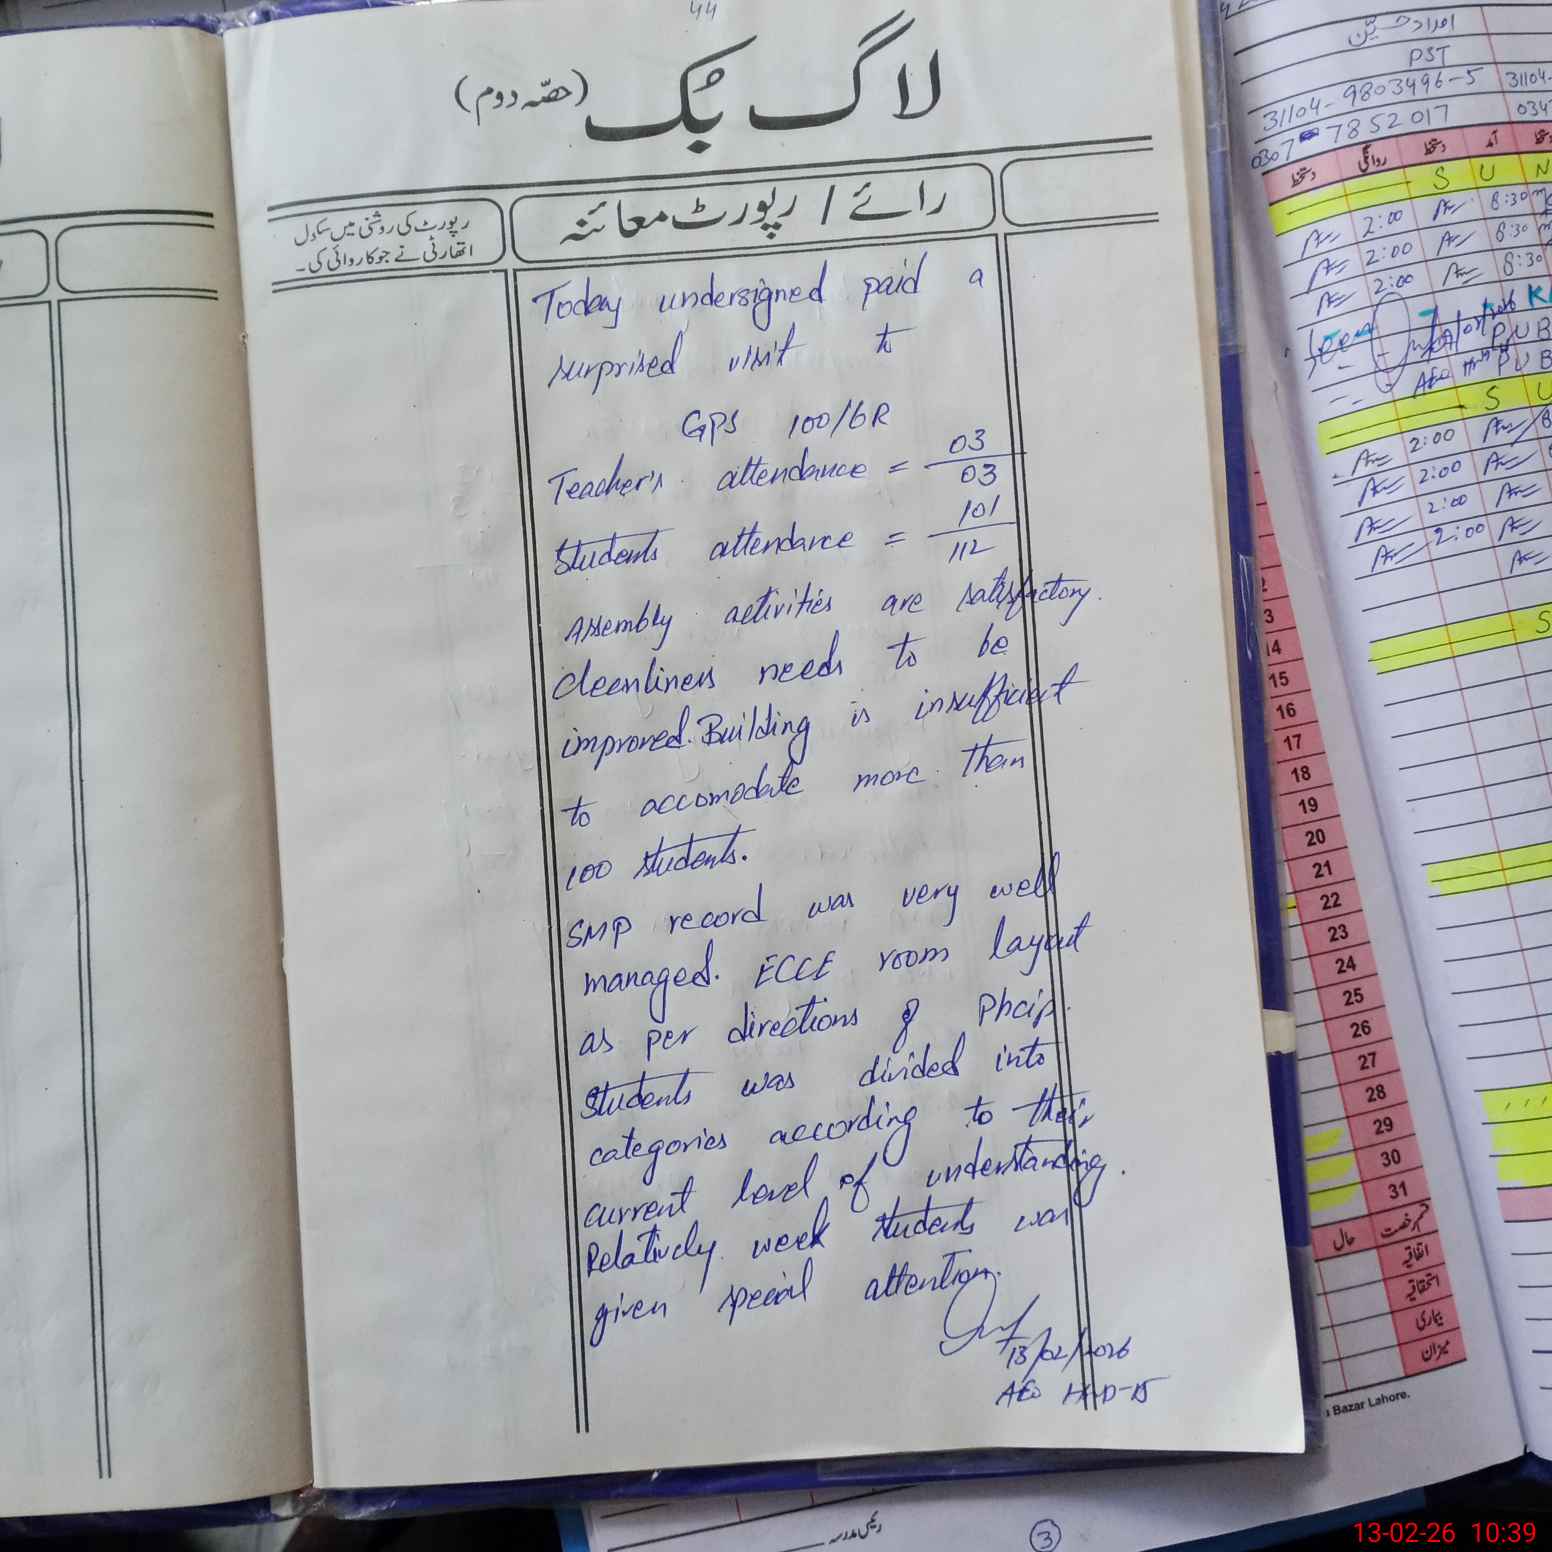 44
لاگ بک (حصّہ دوم)
رائے / رپورٹ معائنہ
رپورٹ کی روشنی میں سکول
اتھارٹی نے جو کاروائی کی۔
Today undersigned paid a
surprised visit to
GPS 100/6R
Teacher's attendance = 03/03
Students attendance = 101/112
Assembly activities are satisfactory.
cleenliness needs to be
improved. Building is insufficient
to accomodate more than
100 students.
SMP record was very well
managed. ECCE room layout
as per directions of Phcip.
Students was divided into
categories according to their
current level of understanding.
Relatively week students was
given special attention.
13/02/2026
AEO
امداد حسین
PST
31104-9803496-5
31104-
0307-7852017
دستخط روانگی دستخط آمد
S U N
2:00 8:30
2:00 8:30
2:00 8:30
Seen
PUB
PUB
S U
2:00
2:00
2:00
2:00
S
3
14
15
16
17
18
19
20
21
22
23
24
25
26
27
28
29
30
31
قسم رخصت حال
اتفاقیہ
استحقاقیہ
بیماری
میزان
Bazar Lahore.
رئیس مدرسہ
3
13-02-26 10:39